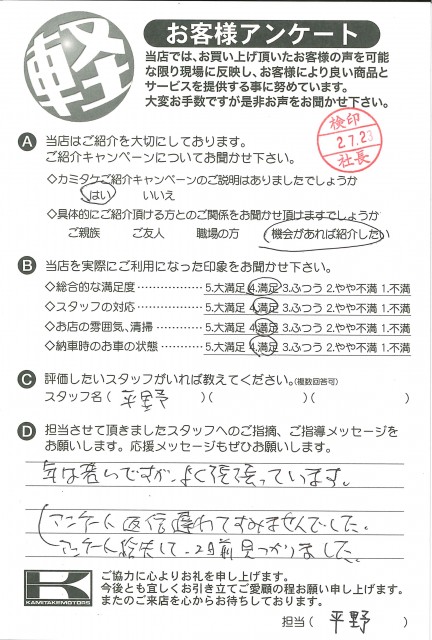 軽
お客様アンケート
当店では、お買い上げ頂いたお客様の声を可能
な限り現場に反映し、お客様により良い商品と
サービスを提供する事に努めています。
大変お手数ですが是非お声をお聞かせ下さい。
検印
27.23
社長
A 当店はご紹介を大切にしております。
ご紹介キャンペーンについてお聞かせ下さい。
◇カミタケご紹介キャンペーンのご説明はありましたでしょうか
はい いいえ
◇具体的にご紹介頂ける方とのご関係をお聞かせ頂けますでしょうか
ご親族 ご友人 職場の方 機会があれば紹介したい
B 当店を実際にご利用になった印象をお聞かせ下さい。
◇総合的な満足度 5.大満足 4.満足 3.ふつう 2.やや不満 1.不満
◇スタッフの対応 5.大満足 4.満足 3.ふつう 2.やや不満 1.不満
◇お店の雰囲気、清掃 5.大満足 4.満足 3.ふつう 2.やや不満 1.不満
◇納車時のお車の状態 5.大満足 4.満足 3.ふつう 2.やや不満 1.不満
C 評価したいスタッフがいれば教えてください。(複数回答可)
スタッフ名( 平野 )( )( )
D 担当させて頂きましたスタッフへのご指摘、ご指導メッセージを
お願いします。応援メッセージもぜひお願いします。
年は若いですが、よく頑張っています。
(アンケート返信遅れてすみませんでした。
アンケート紛失して、2日前見つかりました。
K
KAMITAKE MOTORS
ご協力に心よりお礼を申し上げます。
今後とも宜しくお引き立てご愛顧の程お願い申し上げます。
またのご来店を心からお待ちしております。
担当( 平野 )